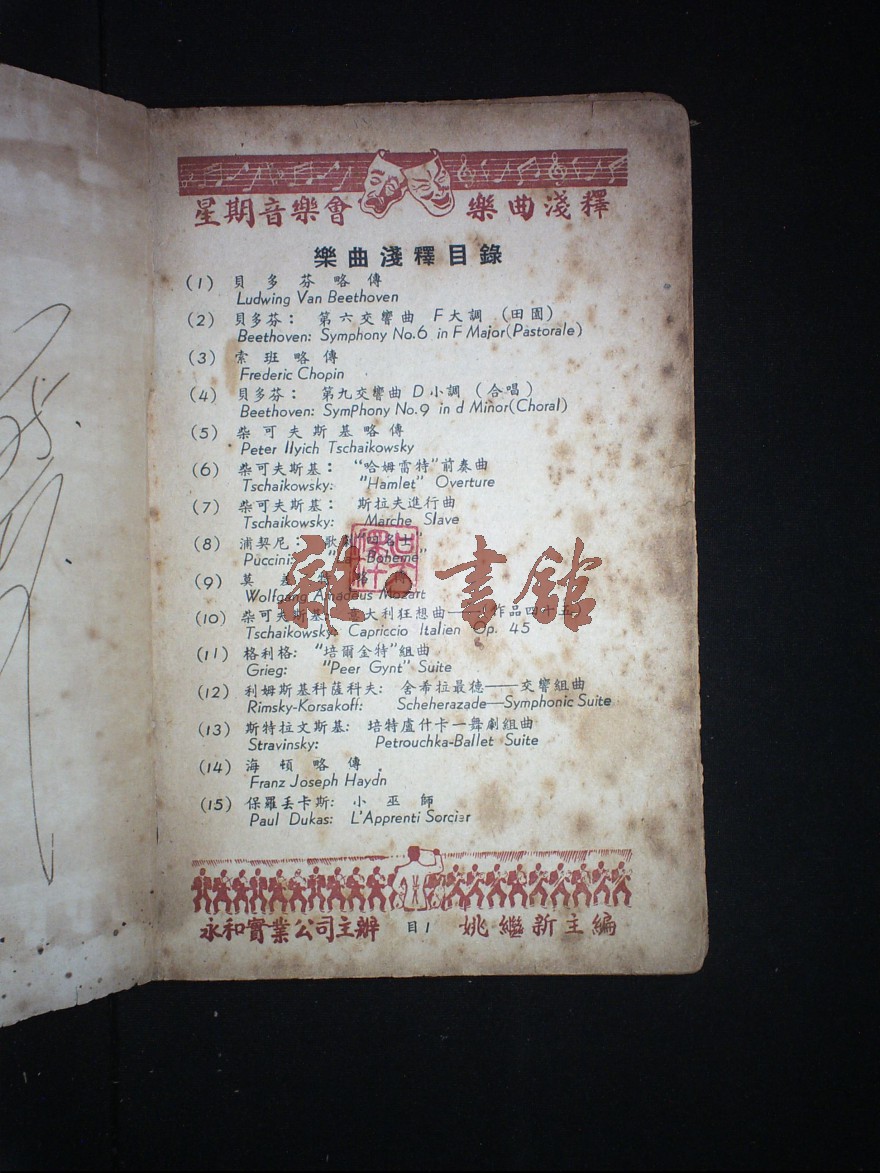 星期音樂會 樂曲淺釋
樂曲淺釋目錄
(1) 貝多芬略傳
Ludwing Van Beethoven
(2) 貝多芬： 第六交響曲 F大調 (田園)
Beethoven: Symphony No.6 in F Major(Pastorale)
(3) 索班略傳
Frederic Chopin
(4) 貝多芬： 第九交響曲 D小調 (合唱)
Beethoven: SymPhony No.9 in d Minor(Choral)
(5) 柴可夫斯基略傳
Peter Ilyich Tschaikowsky
(6) 柴可夫斯基： "哈姆雷特"前奏曲
Tschaikowsky: "Hamlet" Overture
(7) 柴可夫斯基： 斯拉夫進行曲
Tschaikowsky: Marche Slave
(8) 浦契尼： 歌劇"四名士"
Puccini: "La Boheme"
(9) 莫差特略傳
Wolfgang Amadeus Mozart
(10) 柴可夫斯基： 意大利狂想曲——(作品四十五)
Tschaikowsky: Capriccio Italien Op. 45
(11) 格利格: "培爾金特"組曲
Grieg: "Peer Gynt" Suite
(12) 利姆斯基科薩科夫: 舍希拉最德——交響組曲
Rimsky-Korsakoff: Scheherazade—Symphonic Suite
(13) 斯特拉文斯基: 培特盧什卡—舞劇組曲
Stravinsky: Petrouchka-Ballet Suite
(14) 海頓略傳
Franz Joseph Haydn
(15) 保羅丟卡斯: 小巫師
Paul Dukas: L'Apprenti Sorcier
永和實業公司主辦 目1 姚繼新主編
雜·書館